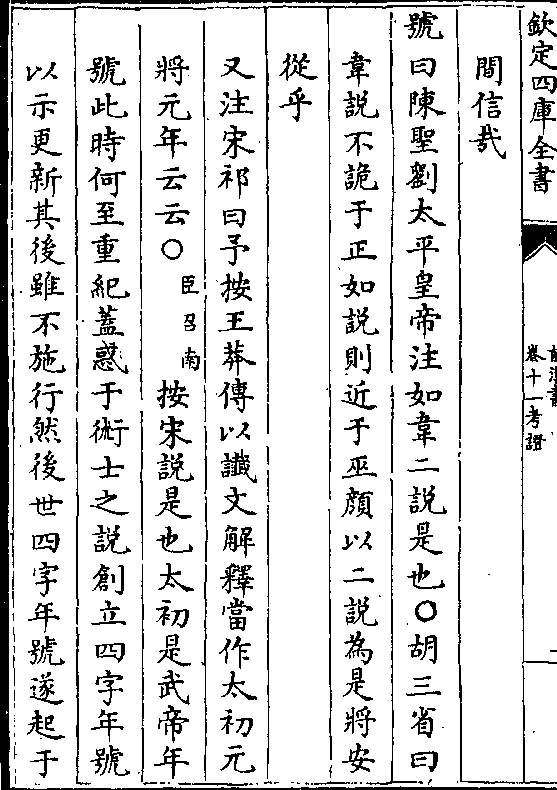 欽定四庫全書
卷十一考證
間信哉
號曰陳聖劉太平皇帝注如韋二說是也○胡三省曰
韋說不詭于正如說則近于巫顔以二說為是將安
從乎
又注宋祁曰予按王莽傳以讖文解釋當作太初元
將元年云云○臣召南按宋說是也太初是武帝年
號此時何至重紀蓋惑于術士之說創立四字年號
以示更新其後雖不施行然後世四字年號遂起于